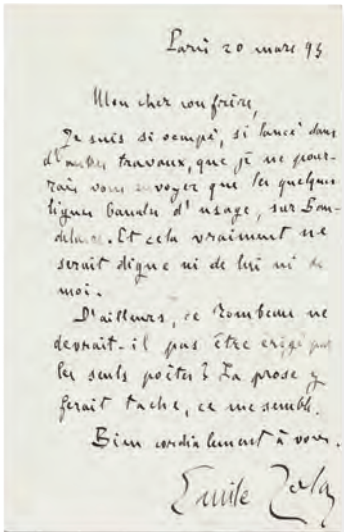 Paris 20 mars 95
Mon cher confrère,
Je suis si occupé, si lancé dans
d'autres travaux, que je ne pour-
rais vous envoyer que les quelques
lignes banales d'usage, sur Bau-
delaire. Et cela vraiment ne
serait digne ni de lui ni de
moi.
D'ailleurs, ce Tombeau ne
devrait-il pas être érigé par
les seuls poètes? La prose y
ferait tache, ce me semble.
Bien cordialement à vous.
Emile Zola